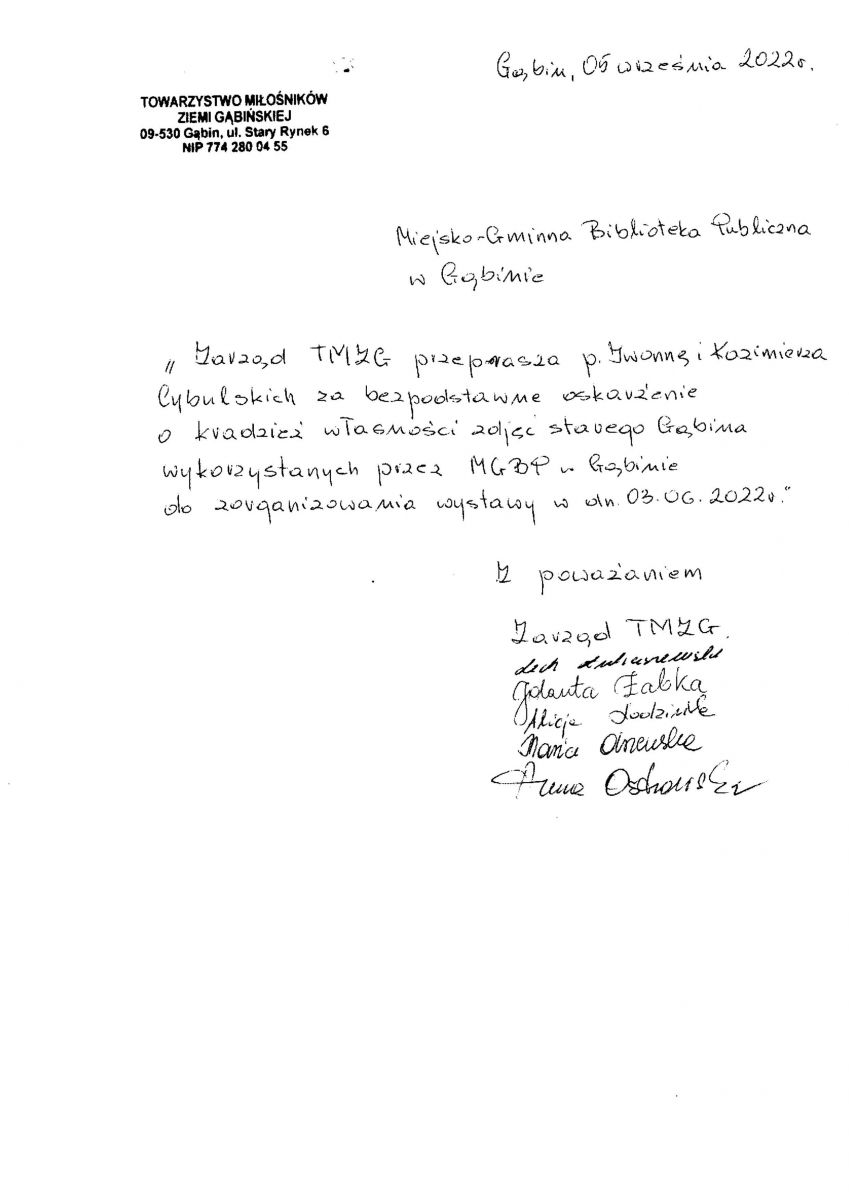 Gąbin, 05 września 2022r.
TOWARZYSTWO MIŁOŚNIKÓW
ZIEMI GĄBIŃSKIEJ
09-530 Gąbin, ul. Stary Rynek 6
NIP 774 280 04 55
Miejsko-Gminna Biblioteka Publiczna
w Gąbinie
„ Zarząd TMZG przeprasza p. Iwonnę i Kazimierza
Cybulskich za bezpodstawne oskarżenie
o kradzież własności zdjęć starego Gąbina
wykorzystanych przez MGBP w Gąbinie
do zorganizowania wystawy w dn. 03.06.2022r."
Z poważaniem
Zarząd TMZG.
Lech
Jolanta Żabka
Alicja
Maria
Anna